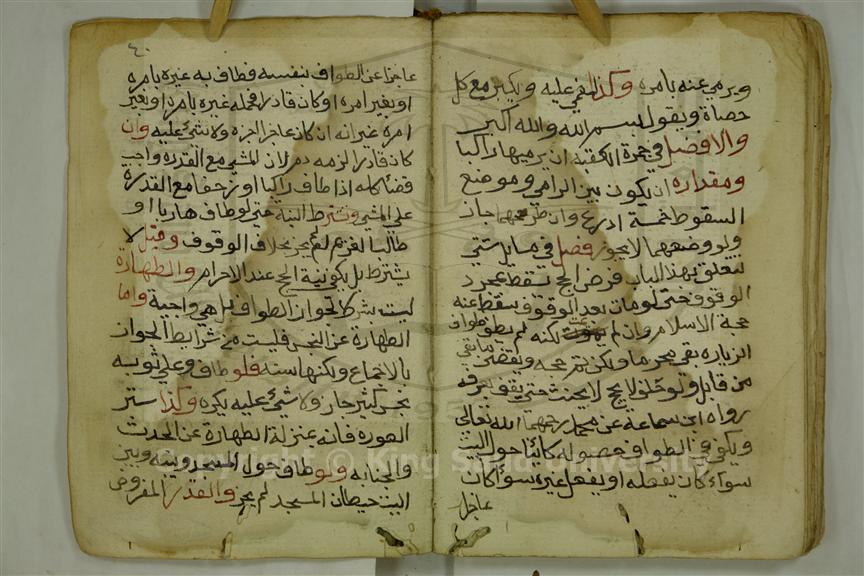 ويرمي عنه بامره وكذا المغمي عليه ويكبر مع كل
حصاة ويقول بسم الله والله اكبر
والافضل في جمرة العقبة ان يرميها راكبا
ومقداره ان يكون بين الرامي وموضع
السقوط خمسة اذرع وان طرحهما جاز
ولو وضعهما لا يجوز فصل في مسايل شتي
تتعلق بهذا الباب فرض الحج تسقط بمجرد
الوقوف حتى لو مات بعد الوقوف سقط عنه
حجة الاسلام وان لم يمت لكنه لم يطف طواف
الزياره بقي محرما ولكن تم حجه ويقضي ما بقي
من قابل ولو حلف لا يحج لا يحنث حتى يقف بعرفه
رواه ابن سماعة عن محمد رحمهما الله تعالي
ويكفي في الطواف حصوله كائنا حول البيت
سوآء كان بفعله او بفعل غيره سوآء كان
عاجزا
٤٠
عاجزا عن الطواف بنفسه فطاف به غيره بامره
او بغير امره او كان قادرا فحمله غيره بامره او بغير
امره غير انه ان كان عاجزا اجزه ولا شيء عليه وان
كان قادرا لزمه دم لان المشي مع القدره واجب
فصا كله اذا طاف راكبا او زحفا مع القدرة
علي المشي وتشترط النية حتي لو طاف هاربا او
طالبا لغريم لم يجز بخلاف الوقوف وقيل لا
يشترط بل يكفي نية الحج عند الاحرام والطهارة
ليست بشرط لجواز الطواف بل هي واجبة واما
الطهارة عن النجس فليست من شرايط الجواز
بالاجماع ولكنها سنه فلو طاف وعلي ثوبه
نجس كثير جاز ولا شيء عليه يكره وكذا ستر
العوره فانه بمنزلة الطهارة عن الحدث
والجنابه ولو طاف حول المسجد وبينه وبين
البيت حيطان المسجد لم يجز والقدر المفروض
Copyright © King Saud University
1957